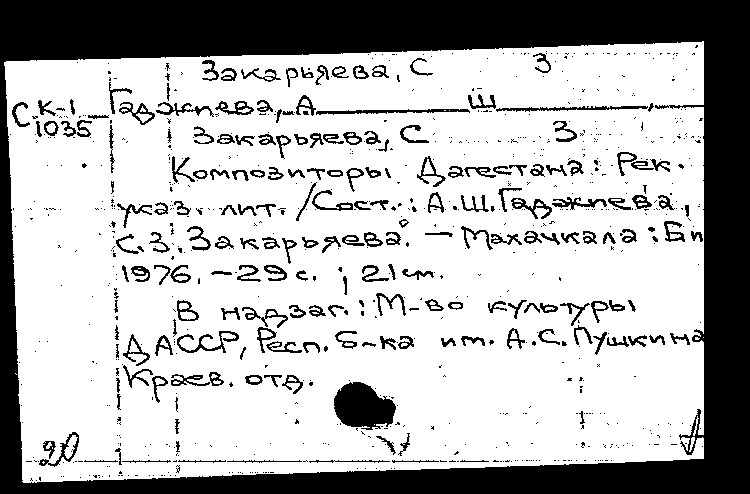 Закарьяева, С З
С К-1 Гаджиева, А Ш ,
1035
Закарьяева, С З
Композиторы Дагестана: Рек.
указ. лит. /Сост.: А.Ш.Гаджиева,
С.З.Закарьяева. — Махачкала: Би
1976. — 29 с. ; 21 см.
В надзаг.: М-во культуры
ДАССР, Респ. б-ка им. А.С.Пушкина
Краев. отд.
20